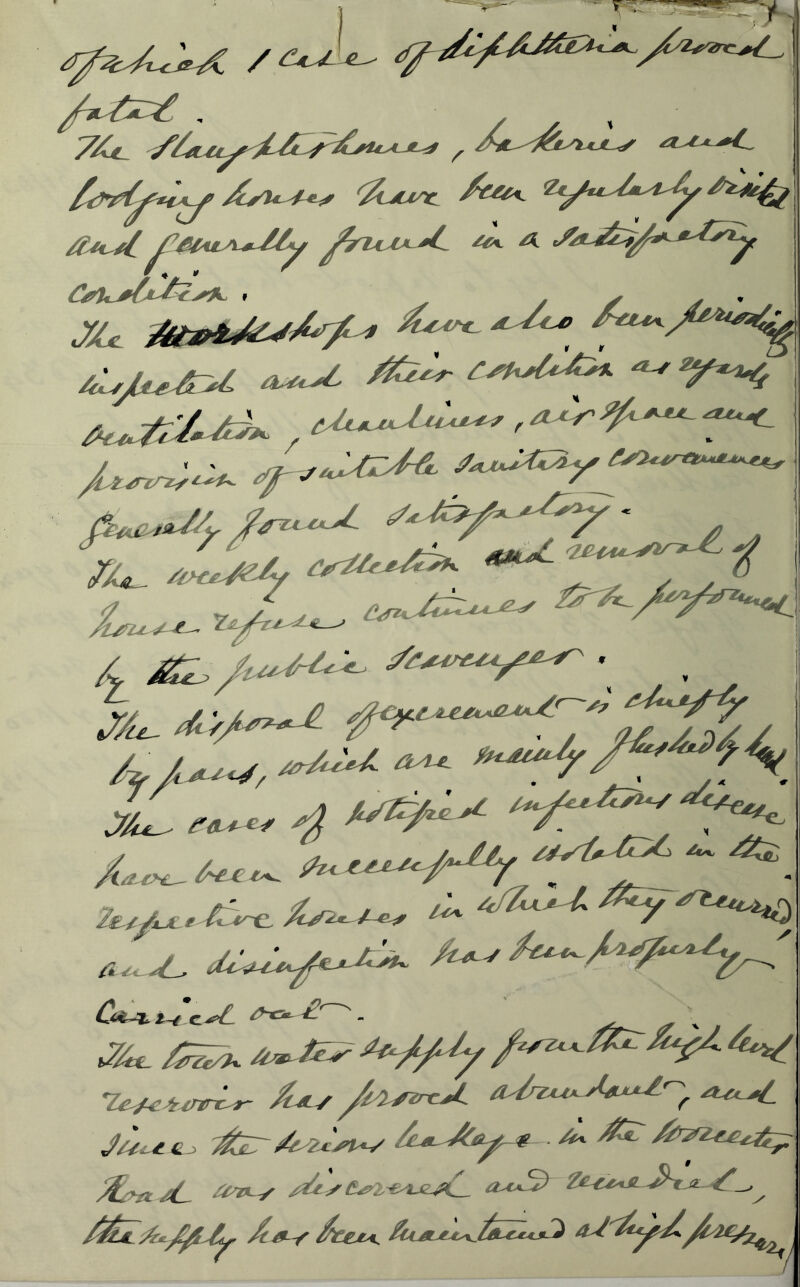 of which 1 case of diphtheria proved
fatal.
The Slaughterhouses, bakeries and
lodging houses have been regularly visited
and generally found in a satisfactory
condition.
The workshops have also been periodically
inspected and their condition as regards
ventilation, cleanliness, air space and
provision of suitable sanitary conveniences
generally found satisfactory.
The weekly collection and removal of
house refuse continues to be performed
by the public scavenger.
The disposal of excrement is chiefly
by pans, which are mainly flushed by hand.
The cases of notified infectious disease
have been successfully isolated in the
respective houses in which they occurred,
and disinfection has been properly
carried out.
The town water supply from the high level
reservoir has proved abundant, and
since the serious leakage in the Worcester
Road was discovered and remedied,
the supply has been maintained at high pressure